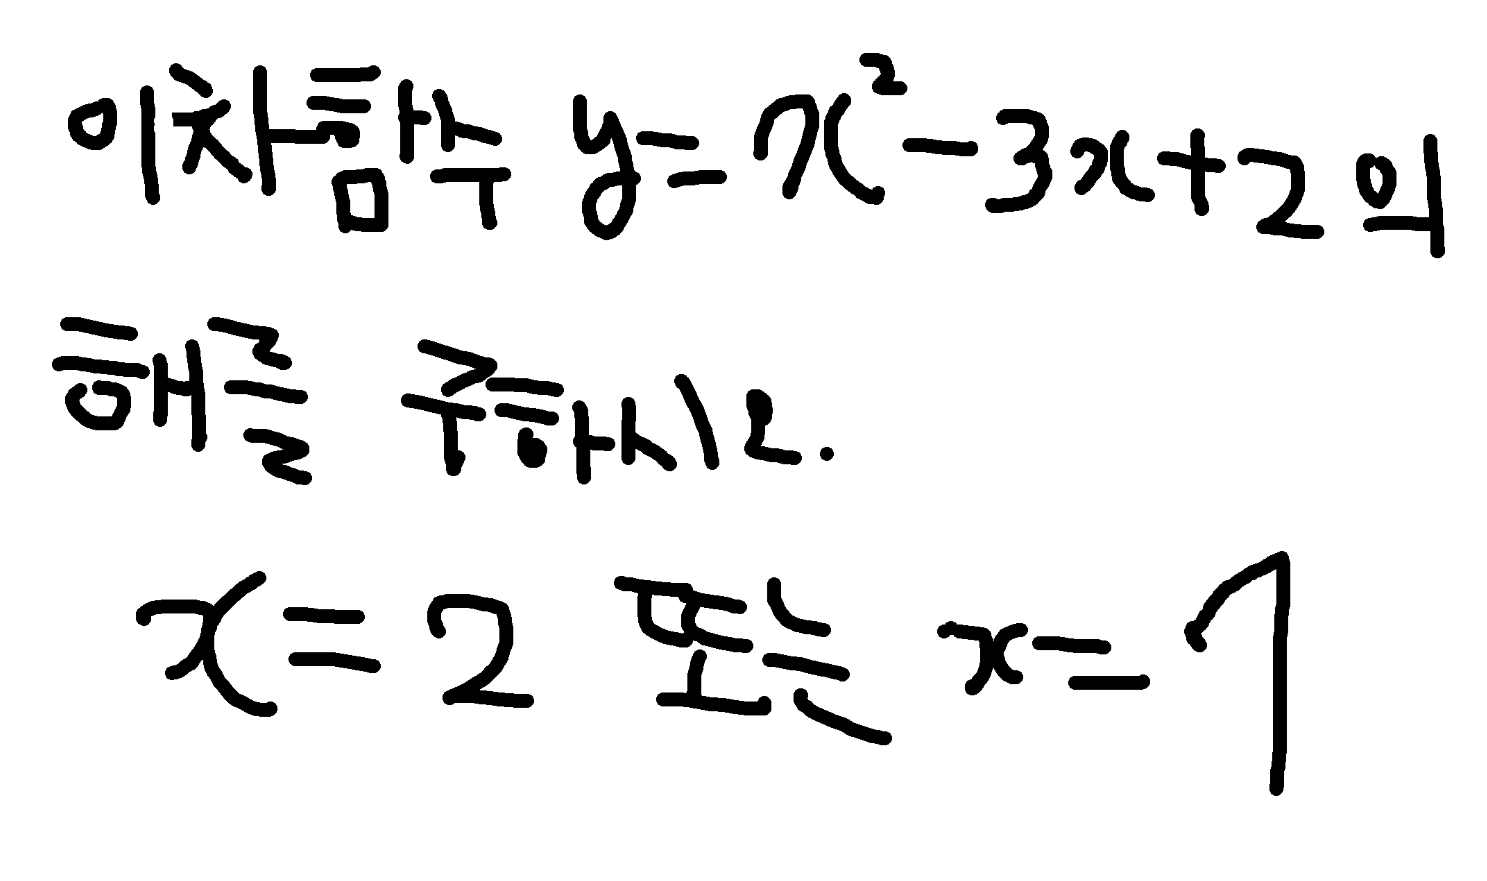 이차함수 y=x²-3x+2의
해를 구하시오.
x=2 또는 x=1